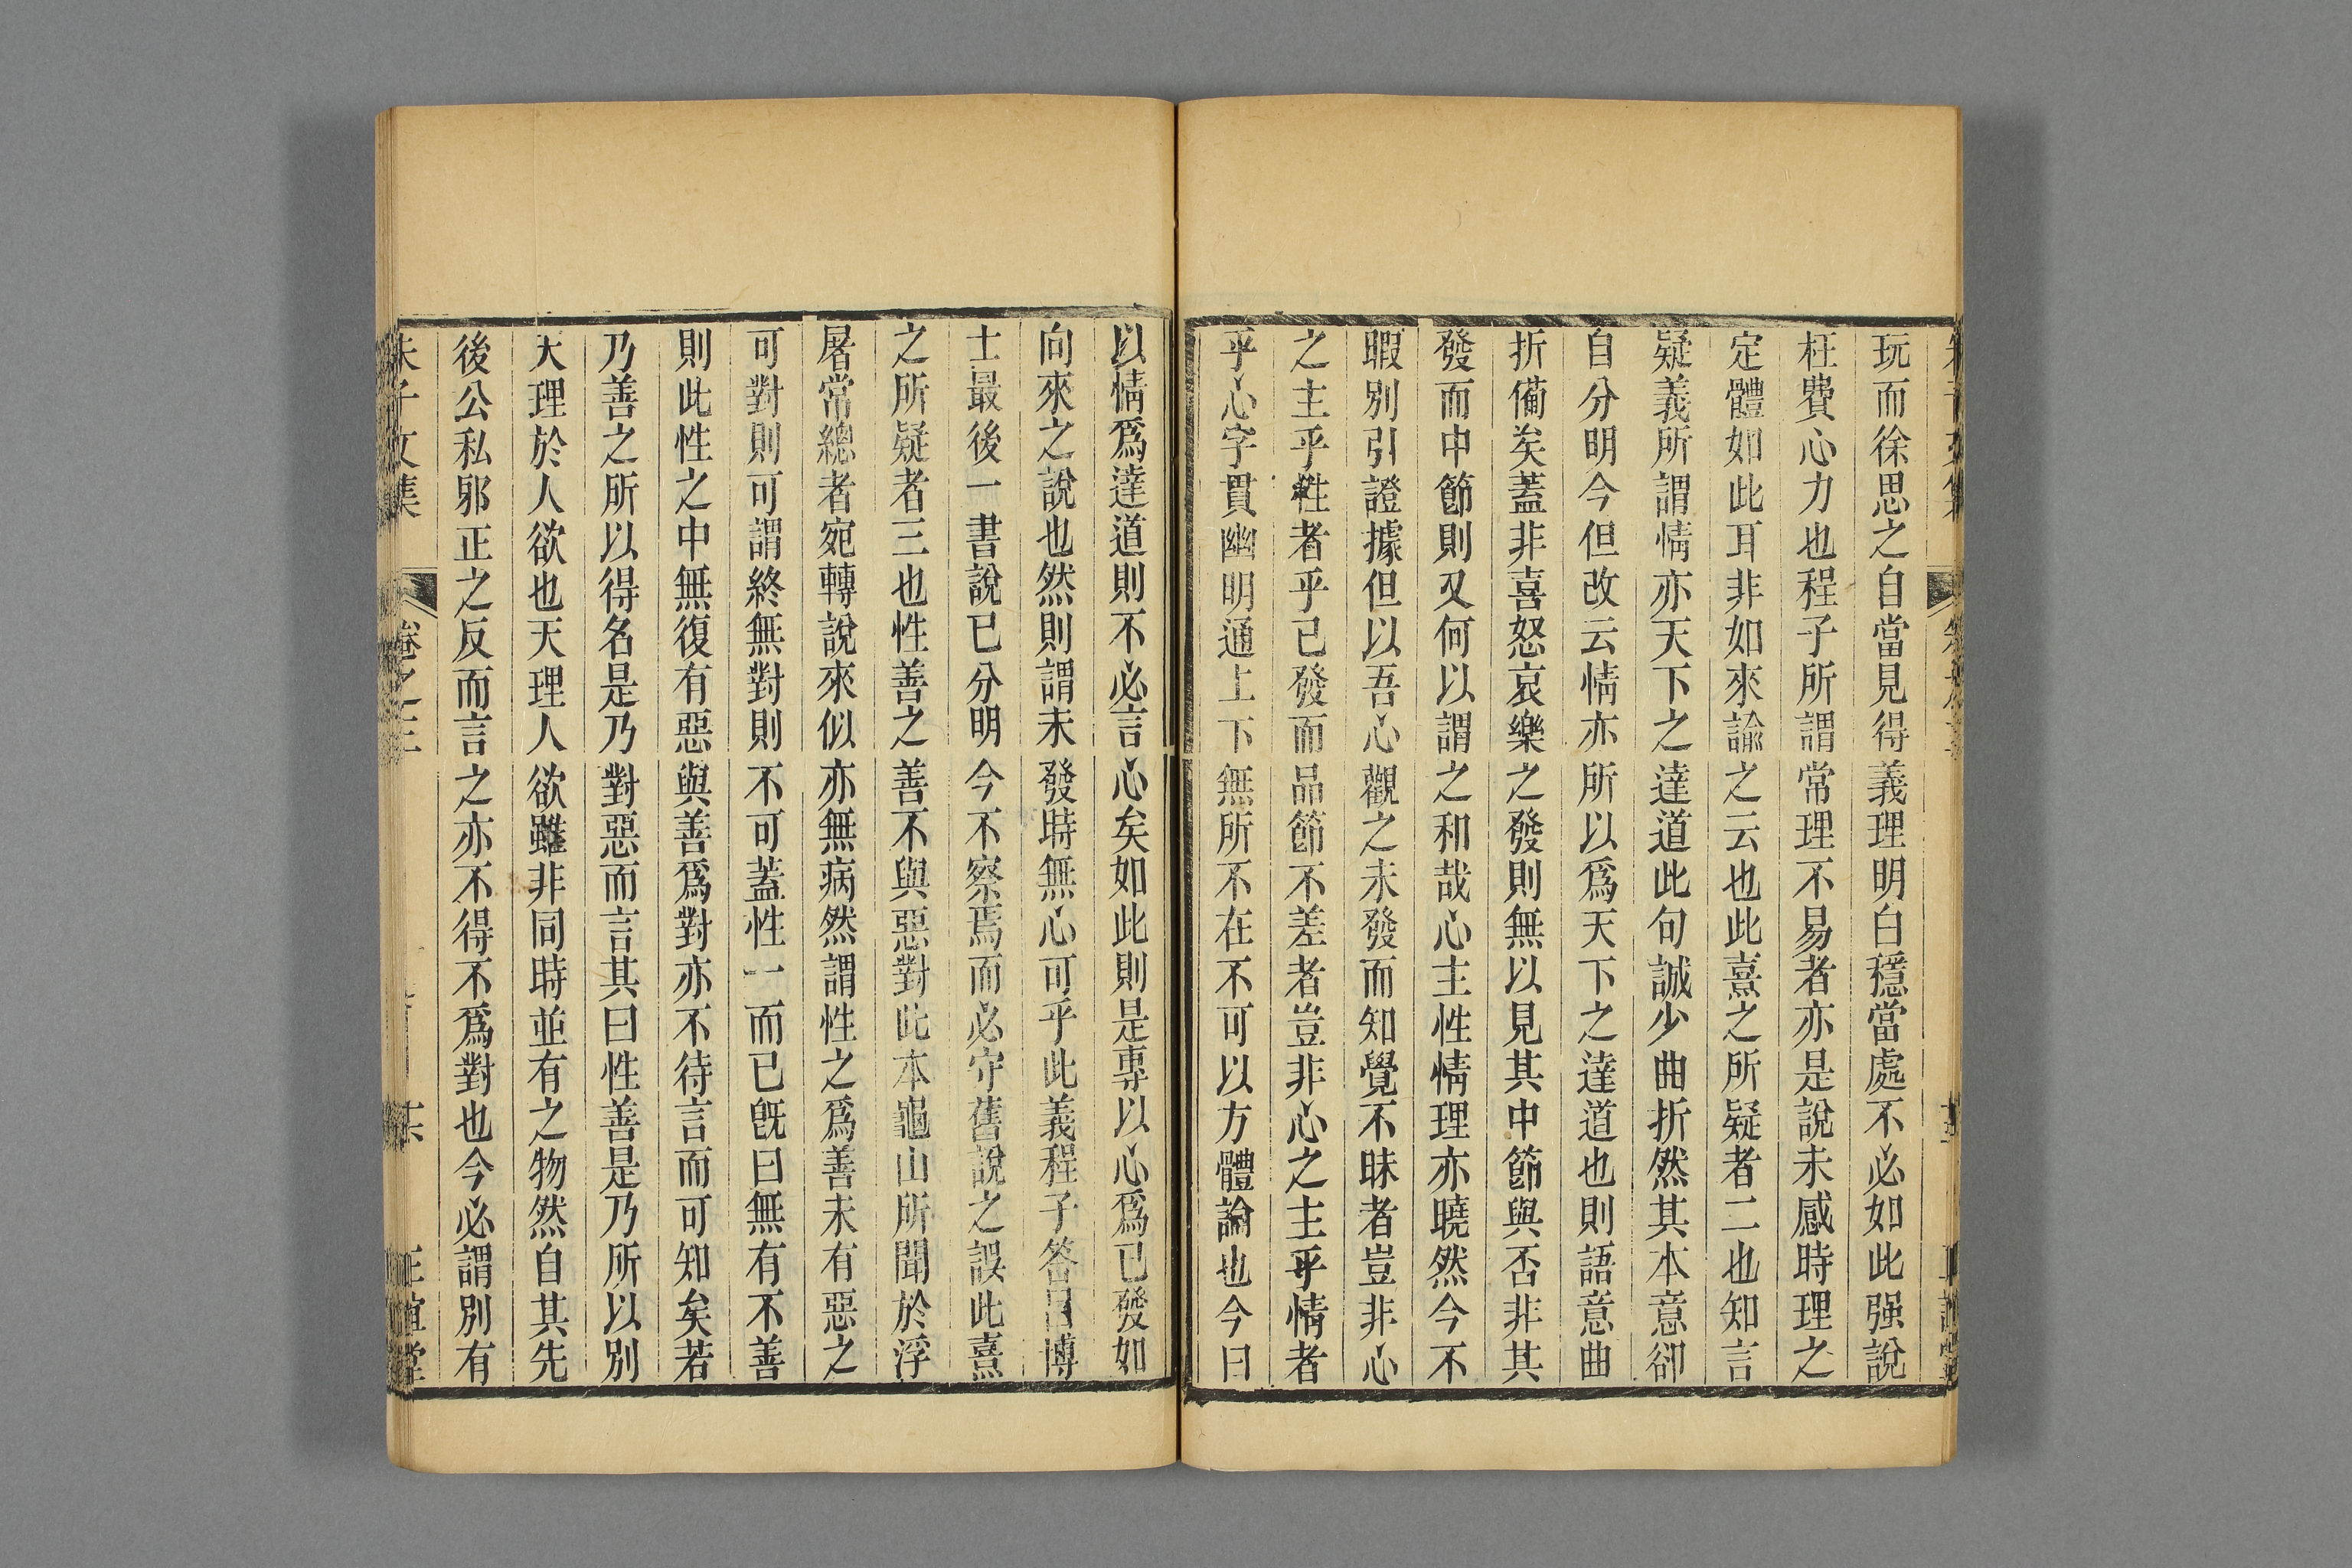 玩而徐思之自當見得義理明白穩當處不必如此强說
枉費心力也程子所謂常理不易者亦是說未感時理之
定體如此耳非如來諭之云也此熹之所疑者二也知言
疑義所謂情亦天下之達道此句誠少曲折然其本意卻
自分明今但改云情亦所以爲天下之達道也則語意曲
折備矣蓋非喜怒哀樂之發則無以見其中節與否非其
發而中節則又何以謂之和哉心主性情理亦曉然今不
暇別引證據但以吾心觀之未發而知覺不昧者豈非心
之主乎性者乎已發而品節不差者豈非心之主乎情者
乎心字貫幽明通上下無所不在不可以方體論也今曰
以情爲達道則不必言心矣如此則是專以心爲已發如
向來之說也然則謂未發時無心可乎此義程子答呂博
士最後一書說已分明今不察焉而必守舊說之誤此熹
之所疑者三也性善之善不與惡對此本龜山所聞於浮
屠常總者宛轉說來似亦無病然謂性之爲善未有惡之
可對則可謂終無對則不可蓋性一而已旣曰無有不善
則此性之中無復有惡與善爲對亦不待言而可知矣若
乃善之所以得名是乃對惡而言其曰性善是乃所以別
天理於人欲也天理人欲雖非同時並有之物然自其先
後公私邪正之反而言之亦不得不爲對也今必謂別有
朱子文集 卷之三 正誼堂